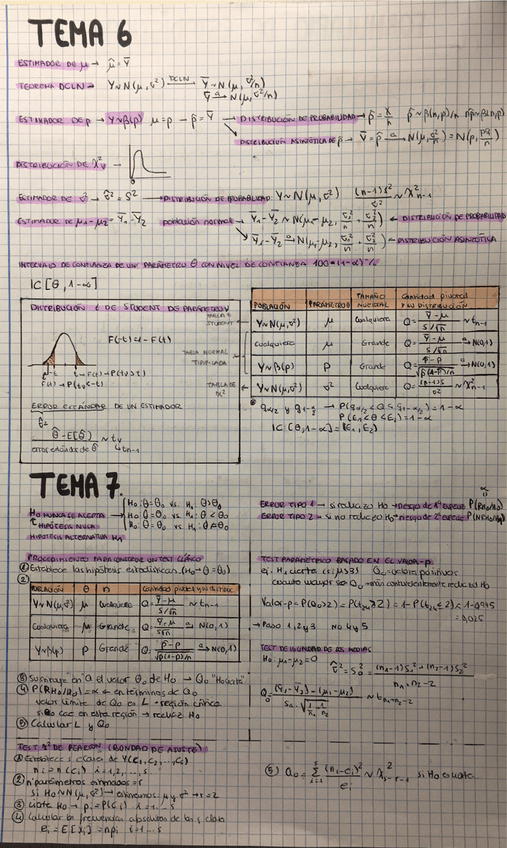 TEMA 6
ESTIMADOR DE μ → μ̂ = Ȳ
TEOREMA DCLN → Y~N(μ, σ²) DCLN→ Ȳ~N(μ, σ²/n)
Ȳ a→ N(μ, σ²/n)
ESTIMADOR DE p → Y~β(p) μ=p → p̂ = Ȳ → DISTRIBUCIÓN DE PROBABILIDAD → p̂ = X/n p̂~β(n,p)/n np̂~β(n,p)
DISTRIBUCIÓN ASINTÓTICA DE p̂ → Ȳ = p̂ a→ N(μ, σ²/n) = N(p, pq/n)
DISTRIBUCIÓN DE χ²ᵥ →
ESTIMADOR DE σ² → σ̂² = S² → DISTRIBUCIÓN DE PROBABILIDAD Y~N(μ, σ²) (n-1)S²/σ² ~ χ²n-1
ESTIMADOR DE μ₁-μ₂ → Ȳ₁-Ȳ₂ población normal → Ȳ₁-Ȳ₂ ~ N(μ₁-μ₂, σ₁²/n₁ + σ₂²/n₂) ← DISTRIBUCIÓN DE PROBABILIDAD
Ȳ₁-Ȳ₂ a→ N(μ₁-μ₂, σ₁²/n₁ + σ₂²/n₂) ← DISTRIBUCIÓN ASINTÓTICA
INTERVALO DE CONFIANZA DE UN PARÁMETRO θ CON NIVEL DE CONFIANZA 100·(1-α)%
IC[θ, 1-α]
DISTRIBUCIÓN t DE STUDENT DE PARÁMETRO
F(-t)=1-F(t)
ERROR ESTÁNDAR DE UN ESTIMADOR
TABLA t STUDENT
TABLA NORMAL TIPIFICADA
TABLA DE χ²
POBLACIÓN PARÁMETRO TAMAÑO MUESTRAL Cantidad pivotal y su distribución
Y~N(μ,σ²) μ Cualquiera Q = Ȳ-μ / S/√n ~ tn-1
Cualquiera μ Grande Q = Ȳ-μ / S/√n a→ N(0,1)
Y~β(p) p Grande Q = p̂-p / √p̂(1-p̂)/n a→ N(0,1)
Y~N(μ,σ²) σ² Cualquiera Q = (n-1)S² / σ² ~ χ²n-1
P(qα/2 < Q ≤ q1-α/2) = 1-α
P(E₁<θ<E₂)=1-α
IC[θ,1-α]=[E₁,E₂]
TEMA 7
H₀ NUNCA SE ACEPTA
HIPÓTESIS NULA
HIPÓTESIS ALTERNATIVA H₁
H₀: θ=θ₀ vs. H₁: θ>θ₀
H₀: θ=θ₀ vs. H₁: θ<θ₀
H₀: θ=θ₀ vs. H₁: θ≠θ₀
ERROR TIPO 1 → si rechazo H₀ → riesgo de 1ª especie P(RH₀/H₀)
ERROR TIPO 2 → si no rechazo H₀ → riesgo de 2ª especie
PROCEDIMIENTO PARA CONSTRUIR UN TEST CLÁSICO
① Establece las hipótesis estadísticas (H₀ → θ=θ₀)
②
POBLACIÓN θ n Cantidad pivotal y su distribuc.
Y~N(μ,σ²) μ Cualquiera Q = Ȳ-μ / S/√n ~ tn-1
Cualquiera μ Grande Q = Ȳ-μ / S/√n a→ N(0,1)
Y~β(p) p Grande Q = p̂-p / √p(1-p)/n a→ N(0,1)
③ Sustituye en Q el valor θ₀ de H₀ → Q₀ "H₀ cierta"
④ P(RH₀/H₀)=α ← en términos de Q₀
valor límite de Q₀ es L → región crítica
si Q₀ cae en esta región → rechazo H₀
⑤ Calcular L y Q₀
TEST PARAMÉTRICO BASADO EN EL VALOR-p
→ Paso 1, 2 y 3 No 4 y 5
TEST DE IGUALDAD DE LAS MEDIAS
H₀: μ₁-μ₂=0
σ̂² = Sa² = (n₁-1)S₁² + (n₂-1)S₂² / n₁+n₂-2
Q₀ = (Ȳ₁-Ȳ₂)-(μ₁-μ₂) / Sa·√1/n₁+1/n₂ ~ tn₁+n₂-2
TEST χ² DE PEARSON (BONDAD DE AJUSTE)
① Establece s clases de Y(C₁,C₂,...,Cs)
nᵢ=n(Cᵢ) i=1,2,...,s
② nº parámetros estimados=r
si H₀~N(μ,σ²) → estimamos: μ y σ² → r=2
③ cierta H₀ → pᵢ=P(Cᵢ) i=1...s
④ Calcular la frecuencia absoluta de las s clases
eᵢ = E[Xᵢ] = npᵢ i=1...s
⑤ Q₀ = Σ (nᵢ-eᵢ)² / eᵢ ~ χ²s-r-1 si H₀ es cierta